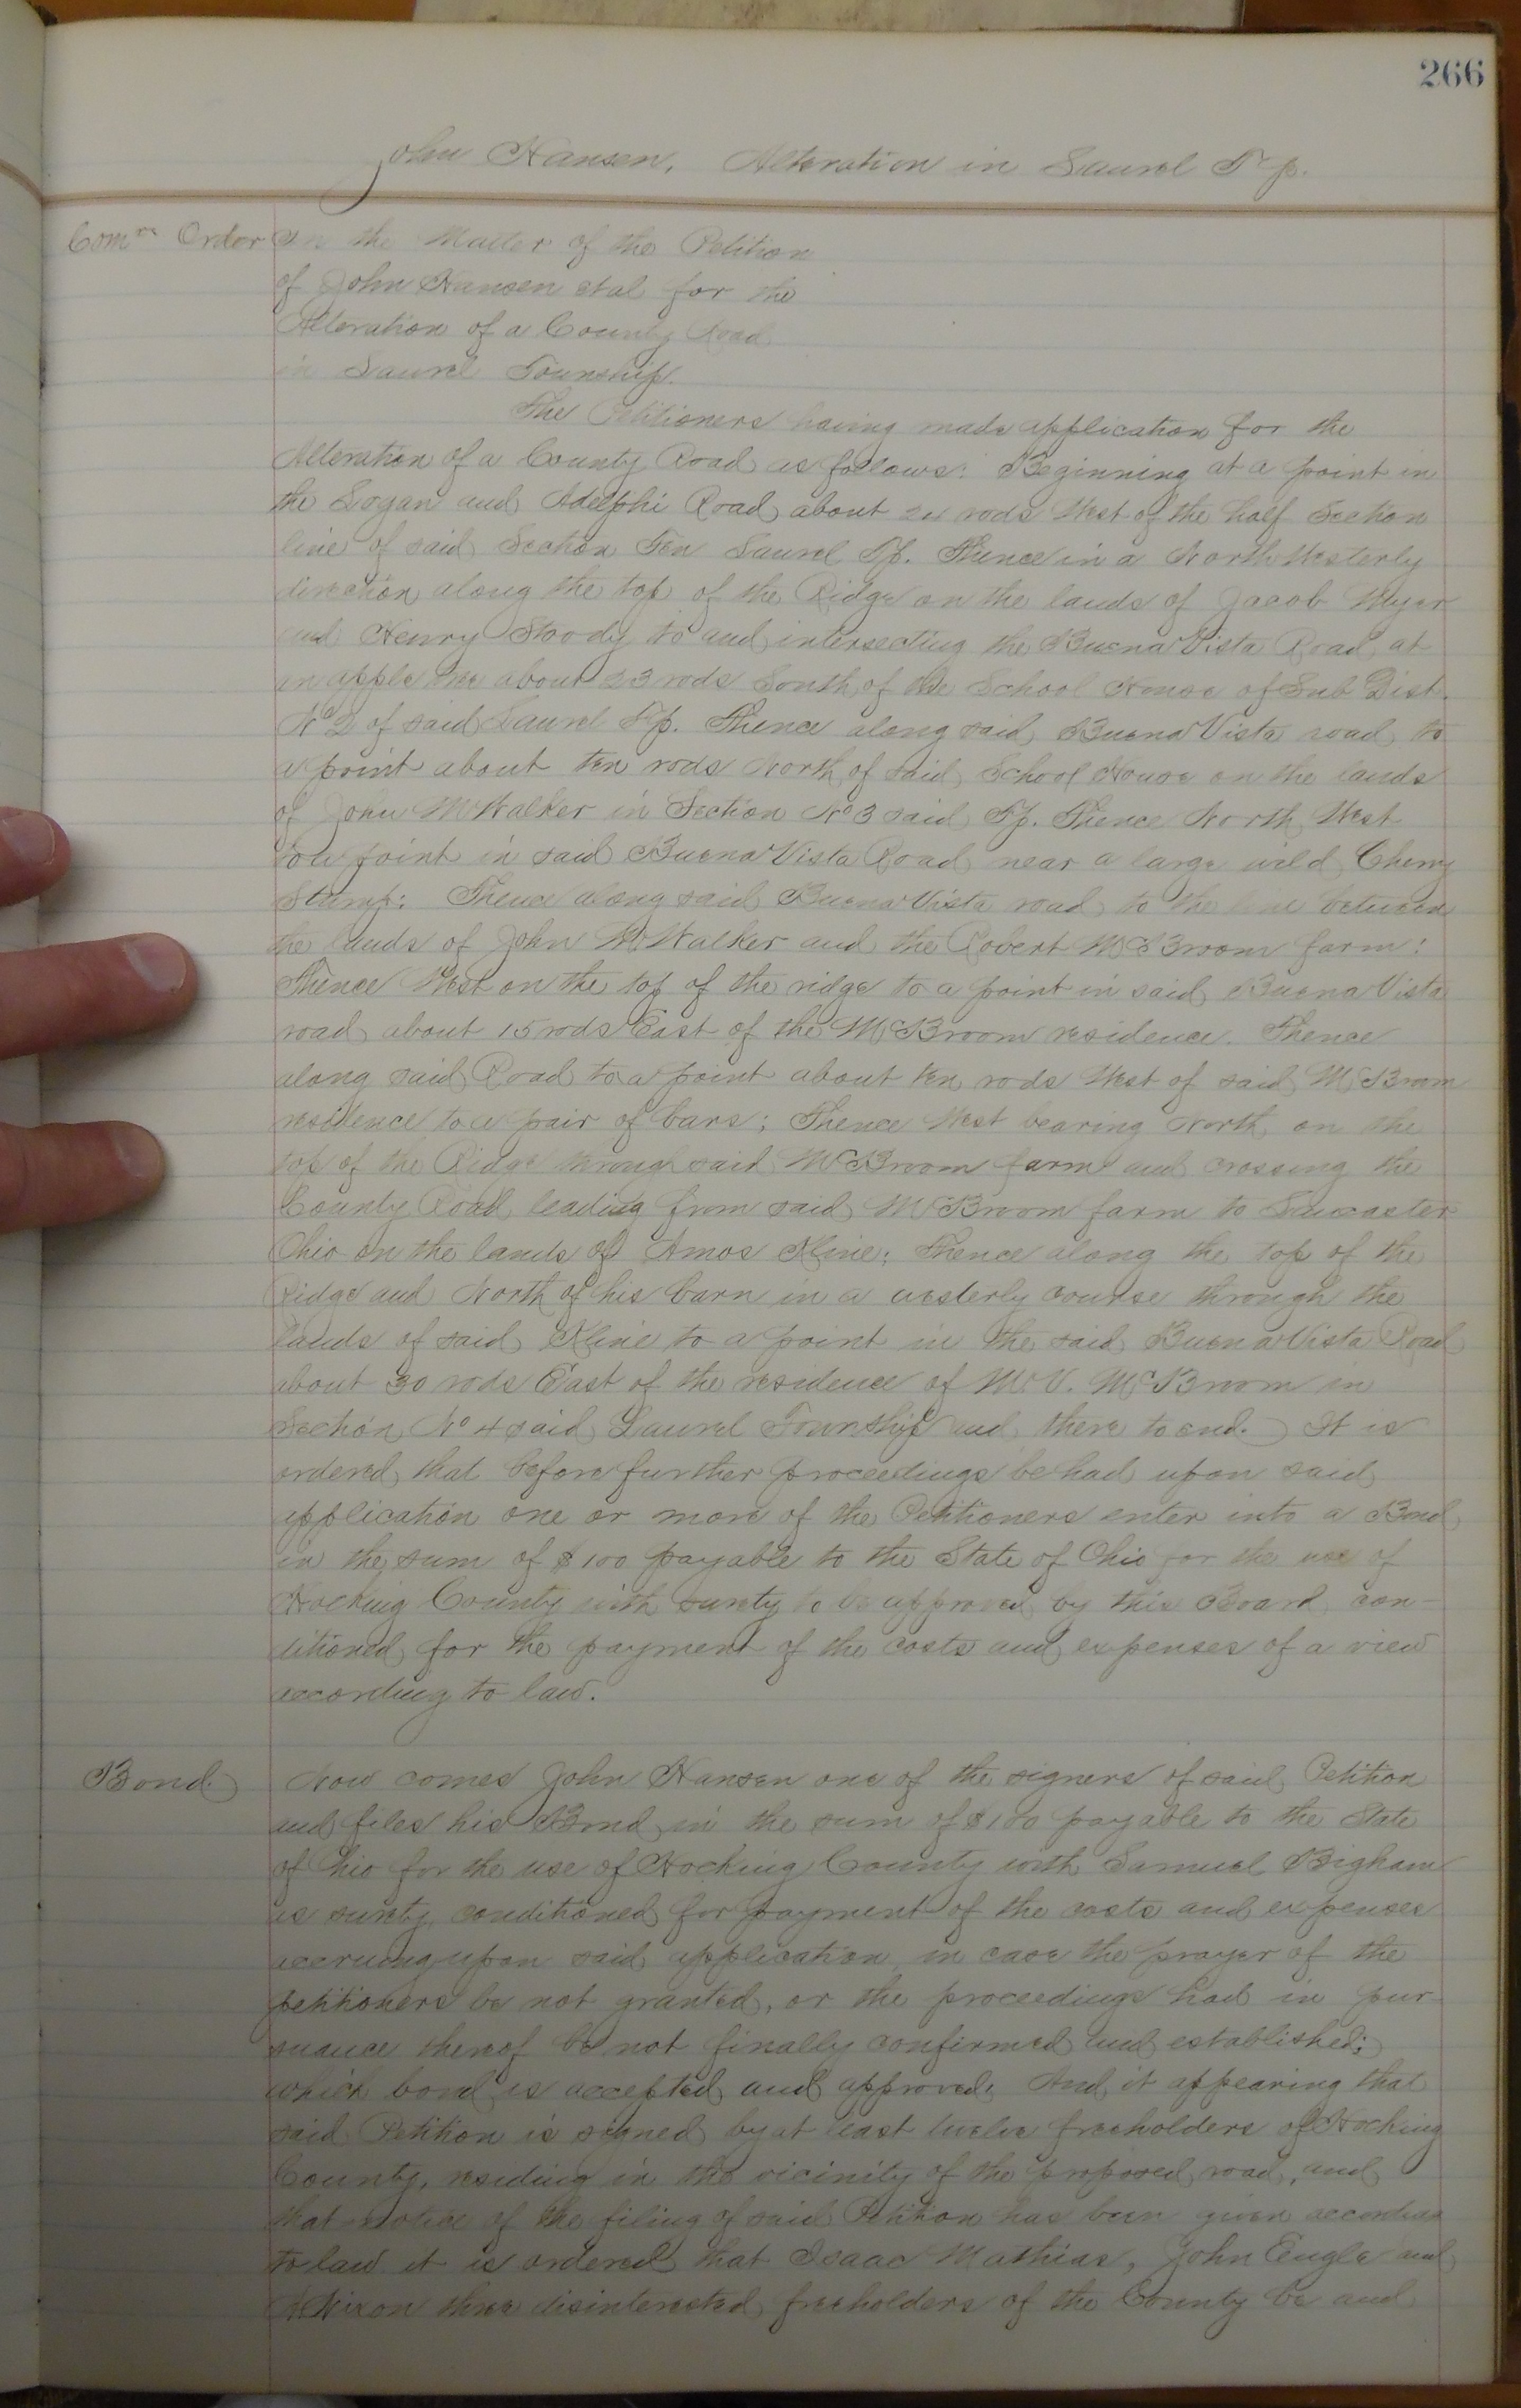 266
John Hansen, Alteration in Laurel Tp.
Comrs Order In the Matter of the Petition
of John Hansen et al for the
Alteration of a County Road
in Laurel Township.
The Petitioners having made application for the
Alteration of a County Road as follows: Beginning at a point in
the Logan and Adelphi Road about 24 rods West of the half Section
line of said Section Ten Laurel Tp. Thence in a North Westerly
direction along the top of the Ridge on the lands of Jacob Myer
and Henry Stoody to and intersecting the Buena Vista Road at
an apple tree about 23 rods South of the School House of Sub Dist.
No 2 of said Laurel Tp. Thence along said Buena Vista road to
a point about ten rods North of said School House on the lands
of John McWalker in Section No 3 said Tp. Thence North West
to a point in said Buena Vista Road near a large wild Cherry
Stump: Thence along said Buena Vista road to the line between
the lands of John W Walker and the Robert McBroom farm:
Thence West on the top of the ridge to a point in said Buena Vista
road about 15 rods East of the McBroom residence. Thence
along said Road to a point about ten rods West of said McBroom
residence to a pair of bars; Thence West bearing North on the
top of the Ridge through said McBroom farm and crossing the
County Road leading from said McBroom farm to Lancaster
Ohio on the lands of Amos Kline; Thence along the top of the
Ridge and North of his barn in a westerly course through the
lands of said Kline to a point in the said Buena Vista Road
about 30 rods East of the residence of M.V. McBroom in
Section No 4 said Laurel Township and there to end. It is
ordered that before further proceedings be had upon said
application one or more of the Petitioners enter into a Bond
in the sum of $100 payable to the State of Ohio for the use of
Hocking County with surety to be approved by this Board con-
ditioned for the payment of the costs and expenses of a view
according to law.
Bond. Now comes John Hansen one of the signers of said Petition
and files his Bond in the sum of $100 payable to the State
of Ohio for the use of Hocking County with Samuel Bigham
as surety conditioned for payment of the costs and expenses
accruing upon said application in case the prayer of the
petitioners be not granted, or the proceedings had in pur-
suance thereof be not finally confirmed and established;
which bond is accepted and approved. And it appearing that
said Petition is signed by at least twelve freeholders of Hocking
County, residing in the vicinity of the proposed road, and
that notice of the filing of said Petition has been given according
to law it is ordered that Isaac Mathias, John Engle and
Nixon three disinterested freeholders of the County be and